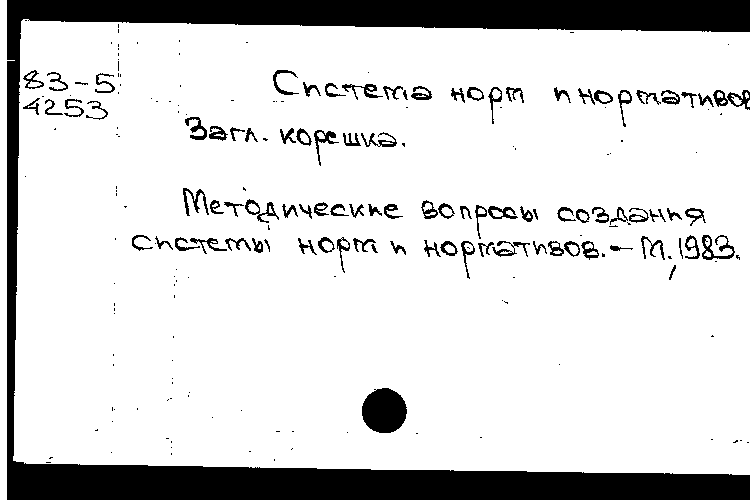 83-5
4253
Система норм и нормативов
Загл. корешка.
Методические вопросы создания
системы норм и нормативов. - М., 1983.